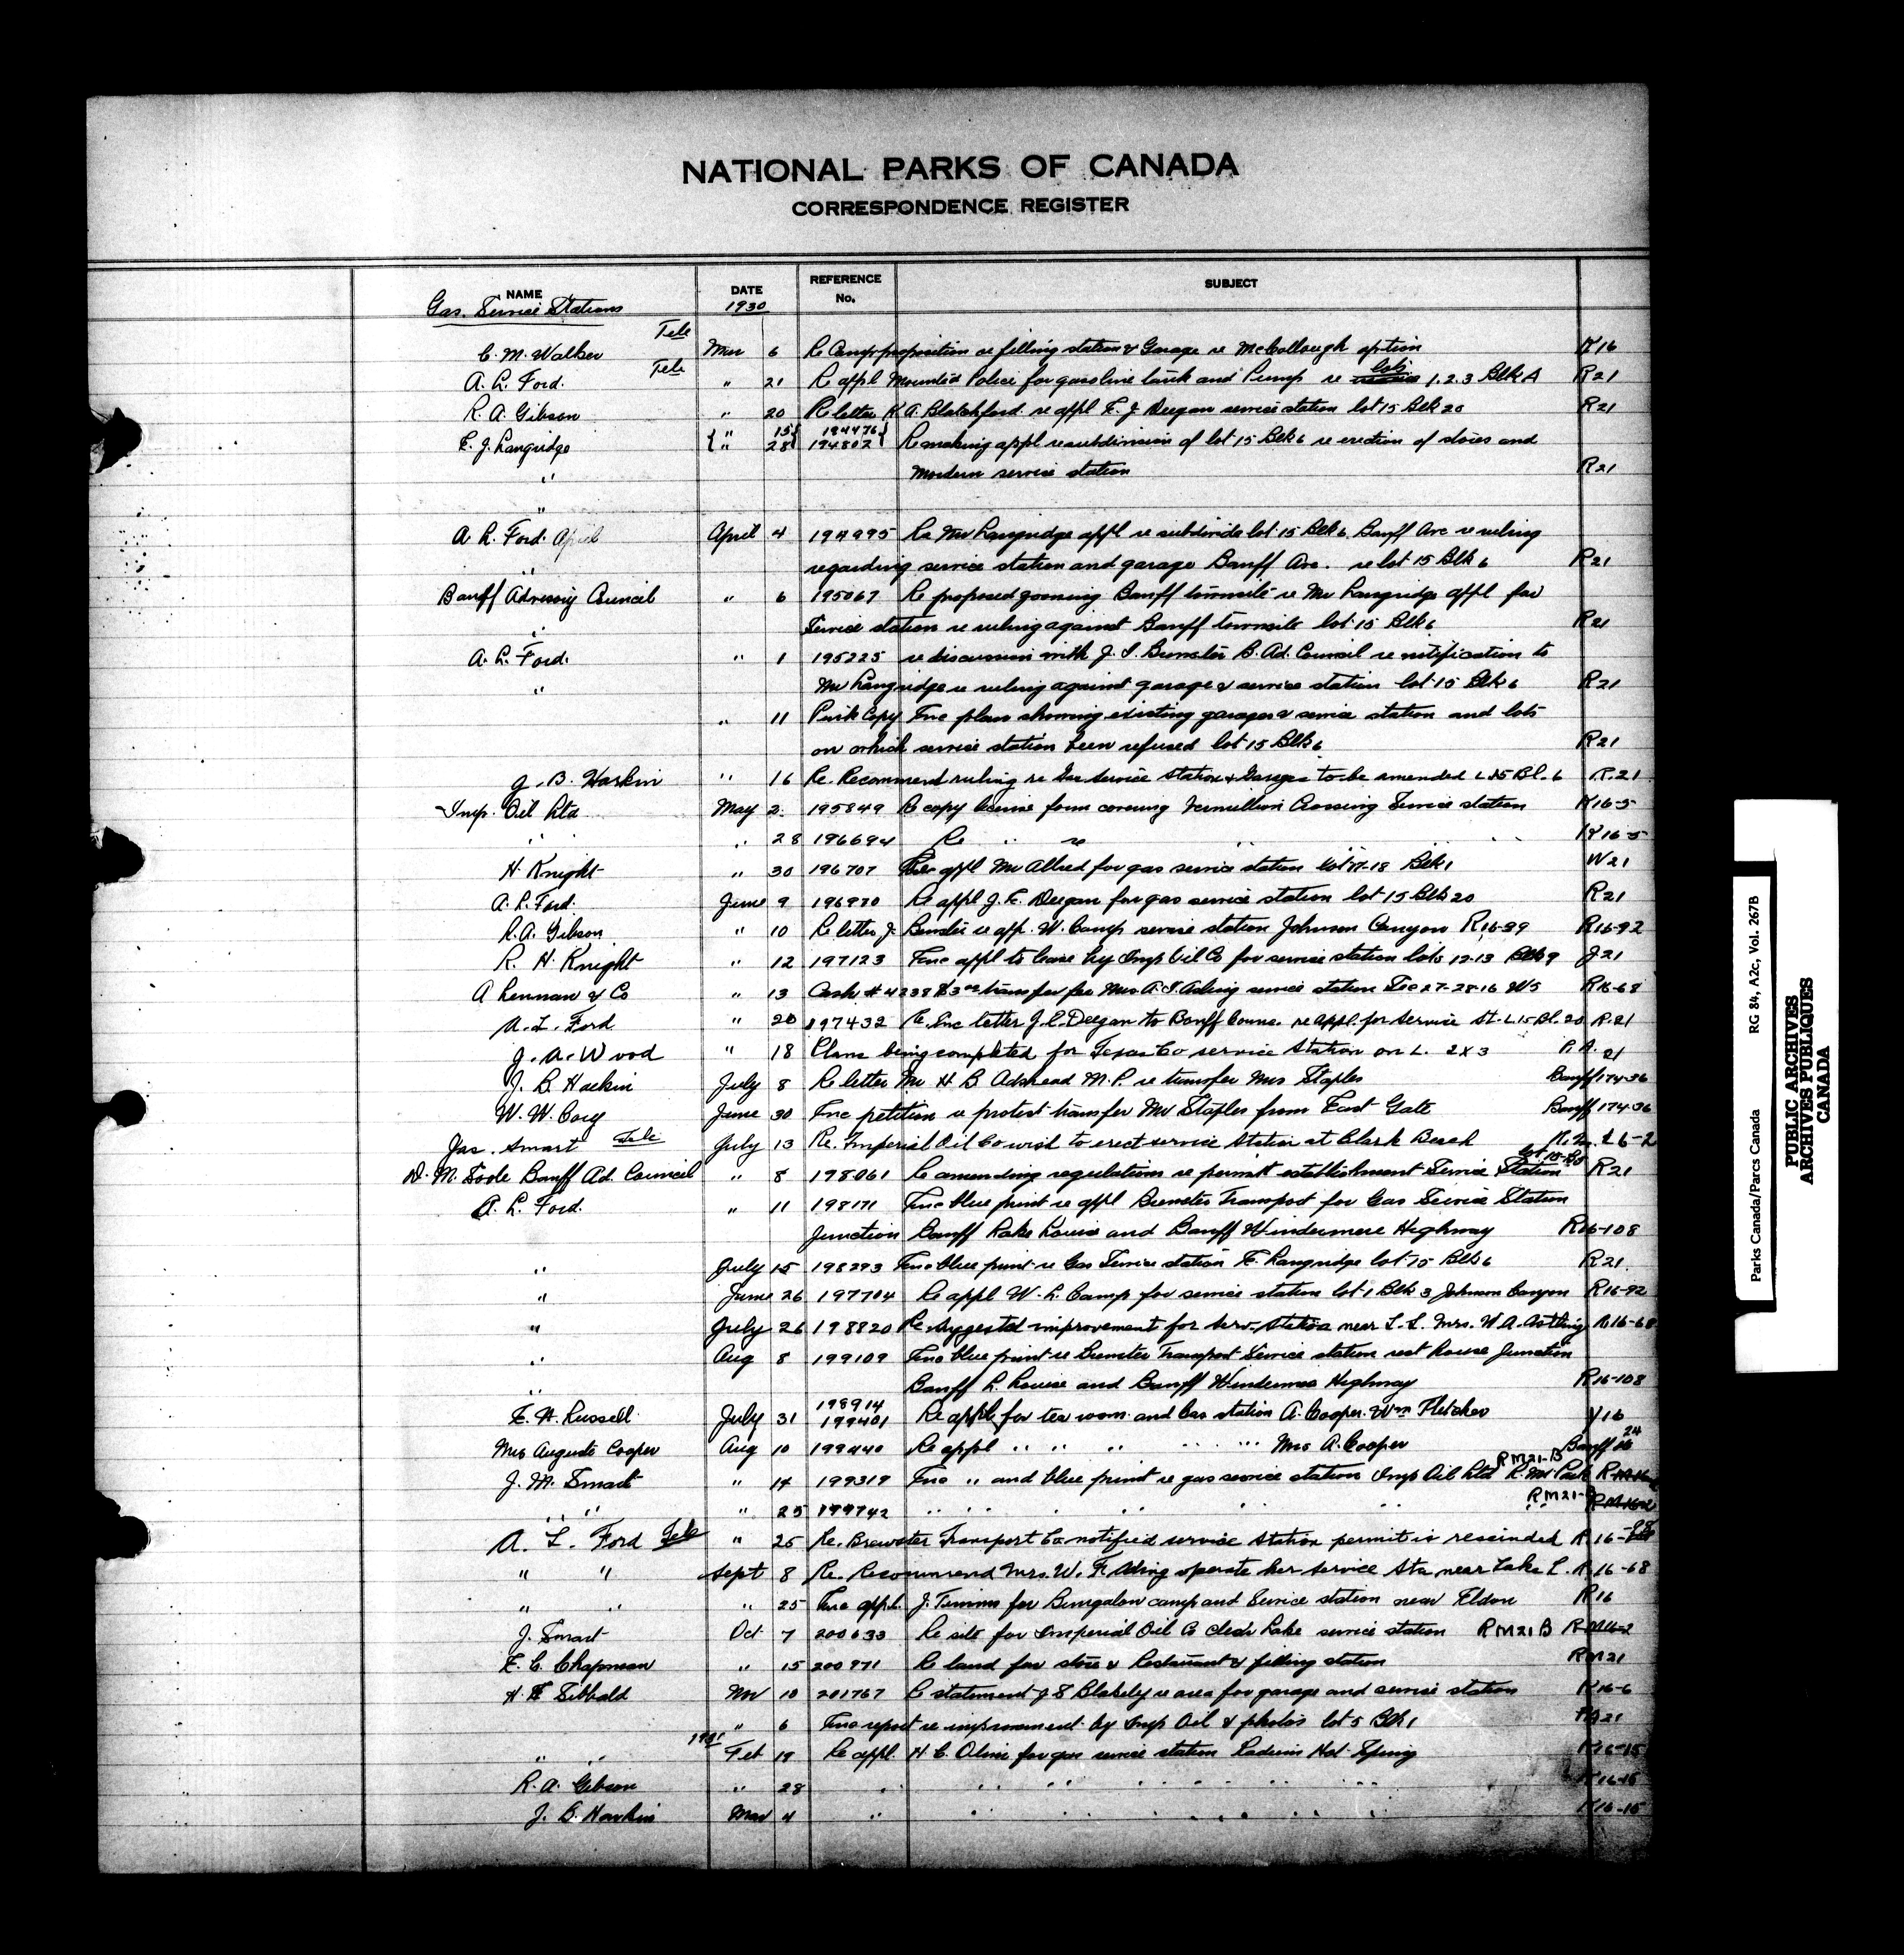 NATIONAL PARKS OF CANADA
CORRESPONDENCE REGISTER
NAME DATE REFERENCE No. SUBJECT
Gas. Service Stations 1930
Tele
C. M. Walker Mar 6 Re Camp proposition re filling station & Garage re McCollough option K16
Tele
A. L. Ford. " 21 Re appl Mounted Police for gasoline tank and Pump re lots 1.2.3 Blk A R21
R. A. Gibson " 20 Re letter K A. Blatchford re appl F. J. Deegan service station lot 15 Blk 20 R21
E. J. Langridge { " 15 194476
" 28 } 194802 } Re making appl re subdivision of lot 15 Blk 6 re erection of stores and
" Modern service station R21
"
A. L. Ford. April April 4 194995 Re Mr Langridge appl re subdivide lot 15 Blk 6 Banff Ave re ruling
" regarding service station and garage Banff Ave. re lot 15 Blk 6 R21
Banff Advisory Council " 6 195067 Re proposed zooning Banff townsite re Mr Langridge appl for
" Service station re ruling against Banff townsite lot 15 Blk 6 R21
A. L. Ford. " 1 195225 re discussion with J. I. Brewster B. Ad. Council re notification to
" Mr Langridge re ruling against garage & service station lot 15 Blk 6 R21
" 11 Park Copy Enc plan showing existing garages & service station and lots
on which service station been refused lot 15 Blk 6 R21
J. B. Harkin " 16 Re. Recommend ruling re Gas Service Station & Garages to be amended L 15 Bl. 6 R.21
Imp. Oil Ltd May 2. 195849 Re copy license form covering Vermillion Crossing Service station K16-5
" " 28 196694 Re " re " " K16-5
H. Knight " 30 196707 appl Mr Allred for gas service station lot 17-18 Blk 1 W21
A. L. Ford. June 9 196970 Re appl J. E. Deegan for gas service station lot 15 Blk 20 R21
R. A. Gibson " 10 Re letter J. Brewster re app. W. Camp service station Johnson Canyon R16-99 R16-92
R. H. Knight " 12 197123 Enc appl to lease by Imp Oil Co for service station lots 12-13 Blk 9 J.21
A Lennan & Co " 13 Cash # 4238 transfer fee Mrs A. J. Asling service station Sec 27-28-16 W5 R16-68
A. L. Ford " 20 197432 Re. Enc letter J. E. Deegan to Banff Counc. re appl. for service St. L 15 Bl. 20 R.21
J. A. Wood " 18 Plans being completed for Texas Co service Station on L. 2 & 3 P. A. 21
J. B. Harkin July 8 Re letter Mr H B Adshead M.P. re transfer Mrs Staples Banff 174-36
W. W. Cory June 30 Enc petition re protest transfer Mr Staples from East Gate Banff 174-36
Jas. Smart Tele July 13 Re. Imperial Oil Co wish to erect service Station at Clark Beach R. M. 16-2
D. M. Soole Banff Ad. Council " 8 198061 Re amending regulations re permit establishment Service Station R21
A. L. Ford. " 11 198171 Enc blue print re appl Brewster Transport for Gas Service Station
Junction Banff Lake Louise and Banff Windermere Highway R16-108
" July 15 198293 Enc blue print re Gas Service station E. Langridge lot 15 Blk 6 R21.
" June 26 197704 Re appl W. L. Camp for service station lot 1 Blk 3 Johnson Canyon R16-92
" July 26 198820 Re. suggested improvement for serv. station near L. L. Mrs. W. A. Astling R16-68
" Aug 8 199109 Enc blue print re Brewster Transport Service station rest house Junction
" Banff L. Louise and Banff Windermere Highway R16-108
198914
E. H. Russell July 31 199401 Re appl for tea room and Gas station A. Cooper. Wm Fletcher Y16
Mrs Augusta Cooper Aug 10 199440 Re appl " " " " " Mrs A. Cooper Banff 16 24
RM21-B
J. M. Smart " 14 199319 Enc " and blue print re gas service station Imp Oil Ltd R. M. Park
" " " 25 199742 " " " " " " RM21-B RM16-2
A. L. Ford Tele " 25 Re. Brewster Transport Co. notified service station permit is rescinded R.16-
" " Sept 8 Re. Recommend Mrs. W. F. Asling operate her service Sta. near Lake L. R.16-68
" " " 25 Enc appl. J. Timms for Bungalow camp and Service station near Eldon R16
J. Smart Oct 7 200633 Re site for Imperial Oil Co Clear Lake service station RM21B RM16-2
E. C. Chapman " 15 200971 Re land for store & Restaurant & filling station RM21
H. E. Sibbald Nov 10 201767 Re statement J S Blakely re area for garage and service station K16-6
" 6 Enc report re improvement by Imp Oil & photos lot 5 Blk 1 PA21
1931
" " Feb 19 Re appl. H. C. Oliver for gas service station Radium Hot Spring K16-15
R. A. Gibson " 28 " " " " " " " " K16-15
J. B. Harkin Mar 4 " " " " " " " " K16-15
Parks Canada/Parcs Canada RG 84, A2c, Vol. 267B
PUBLIC ARCHIVES
ARCHIVES PUBLIQUES
CANADA